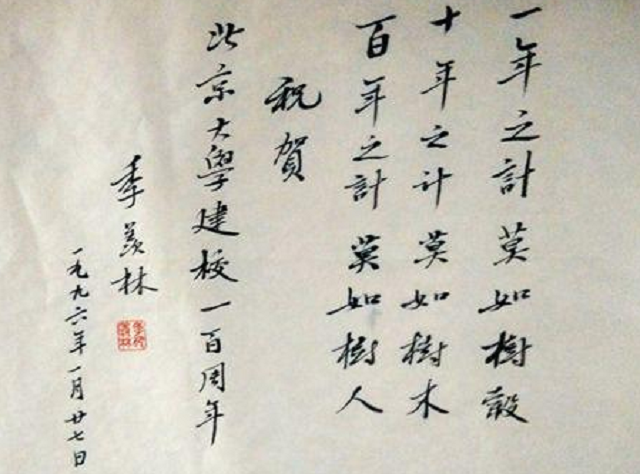 一年之計莫如樹穀
十年之计莫如樹木
百年之計莫如樹人
祝賀
北京大學建校一百周年
季羨林
一九九六年一月廿七日